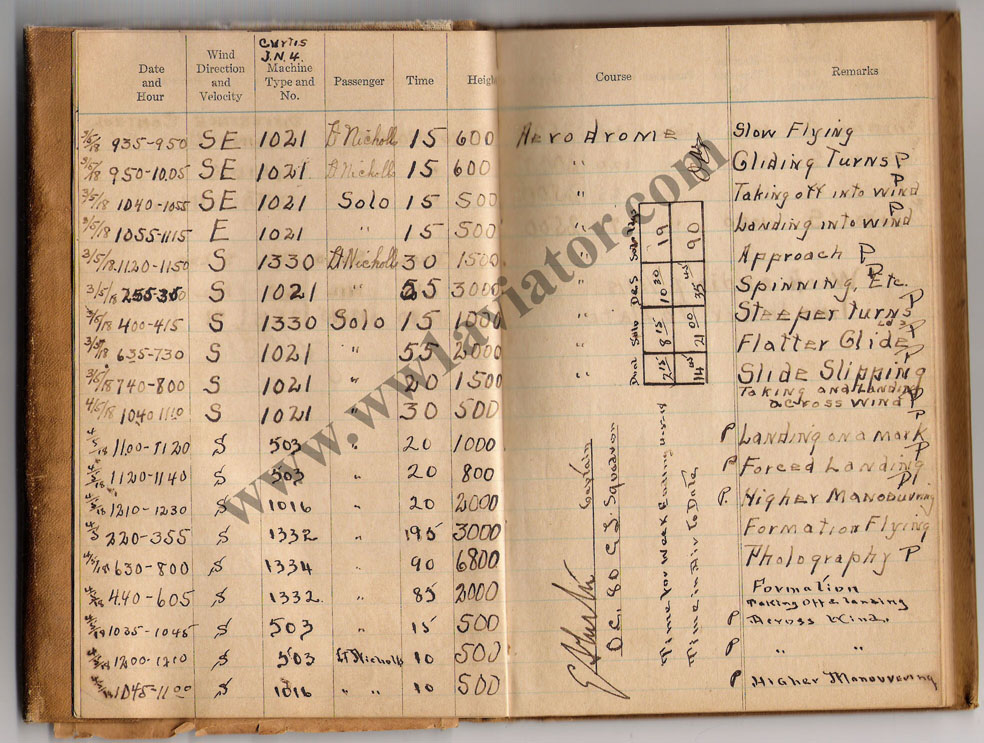 Curtis
J.N.4.
Date and Hour Wind Direction and Velocity Machine Type and No. Passenger Time Height Course Remarks
3/5/18 935-950 SE 1021 Lt Nicholls 15 600 Aerodrome Slow Flying
3/5/18 950-10.05 SE 1021 Lt Nicholls 15 600 " Gliding Turns P
3/5/18 1040-1055 SE 1021 Solo 15 500 " Taking off into wind P
3/5/18 1055-1115 E 1021 " 15 500 " Landing into wind P
3/5/18 1120-1150 S 1330 Lt Nicholls 30 1500 " Approach P
3/5/18 S 1021 " 55 3000 " Spinning, Etc. P
3/5/18 400-415 S 1330 Solo 15 1000 " Steeper Turns P
3/5/18 635-730 S 1021 " 55 2000 " Flatter Glide P
3/5/18 740-800 S 1021 " 20 1500 " Slide Slipping P
4/5/18 1040 1110 S 1021 " 30 500 Taking and Landing across wind P
4/5/18 1100-1120 S 503 " 20 1000 P Landing on a mark P
4/5/18 1120-1140 S 503 " 20 800 P Forced Landing
4/5/18 1210-1230 S 1016 " 20 2000 P. Higher Manoeuvring
4/5 220-355 S 1332 " 195 3000 Formation Flying
630-800 S 1334 " 90 6800 Photography P
440-605 S 1332 " 85 2000 Formation
Taking off & landing
1035-1045 S 503 " 15 500 P Across Wind.
1200-1210 S 503 Lt Nicholls 10 500 P " "
1045-1100 S 1016 " " 10 500 P Higher Manouvering
Dual Solo D&S Solo
2 15 8 15 10 30 19
14 45 21 00 35 45 90
Time for Week Ending
Time in Air to Date
Captain
O.C., 80 C.T. Squadron
www.laviator.com